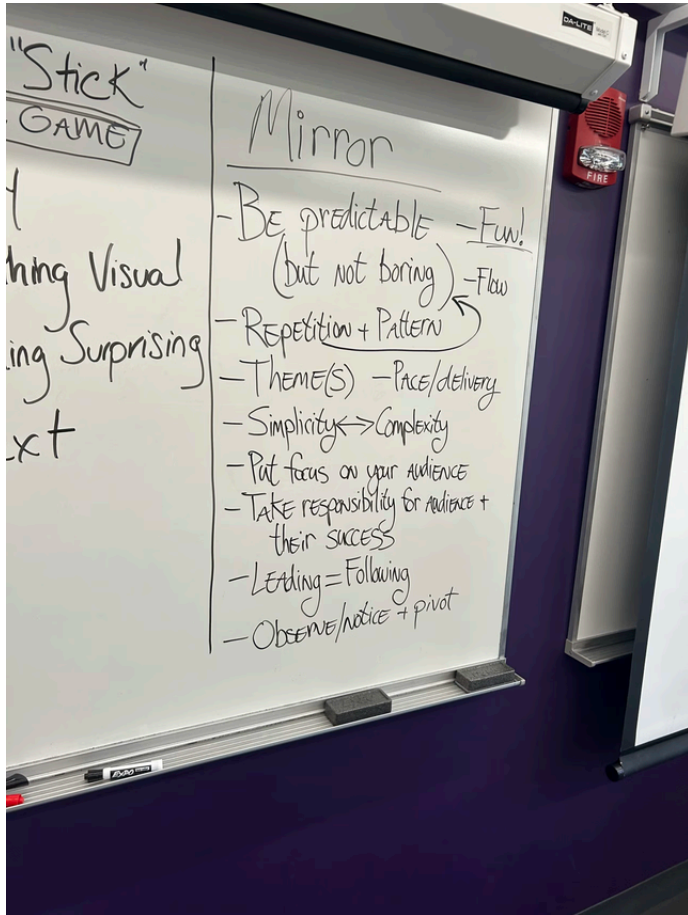 "Stick"
GAME
hing Visual
ing Surprising
ext
Mirror
- Be predictable - Fun!
(but not boring) - Flow
- Repetition + Pattern
- Theme(s) - Pace/delivery
- Simplicity <-> Complexity
- Put focus on your audience
- Take responsibility for audience +
their success
- Leading = Following
- Observe/notice + pivot
DA-LITE
FIRE
EXPO